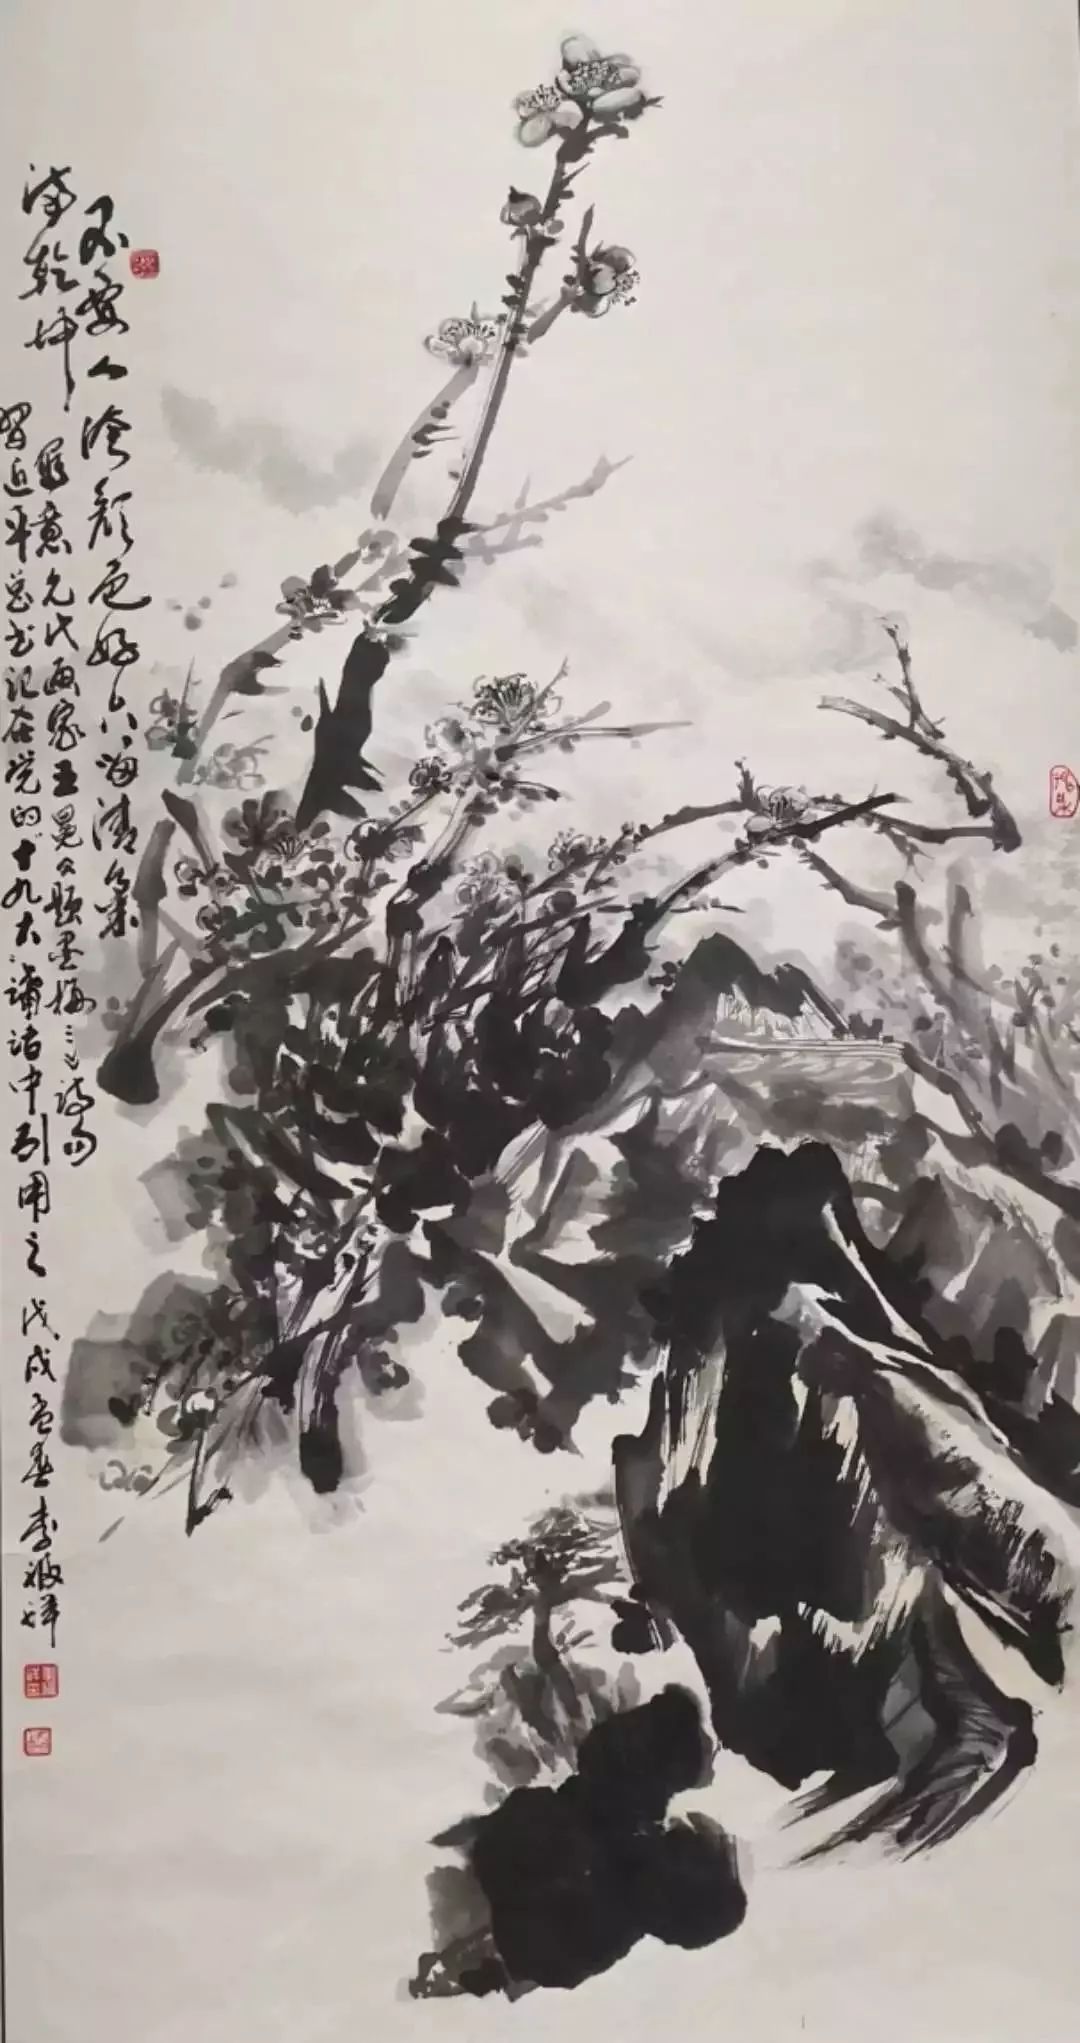 不要人誇颜色好只留清氣
满乾坤
寫意元代画家王冕 题墨梅 诗句
習近平总书记在党的十九大讲话中引用之 戊戌孟春李福祥